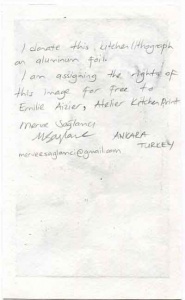 I donate this kitchen lithograph
on aluminum foil.
I am assigning the rights of
this image for free to
Emilie Aizier, Atelier Kitchen Print
Merve Sağlanç
ANKARA
TURKEY
@gmail.com